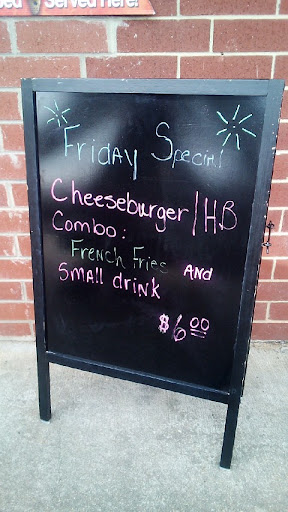 Served Here!
Friday Special
Cheeseburger/HB
Combo:
French Fries AND
Small drink
$6.00